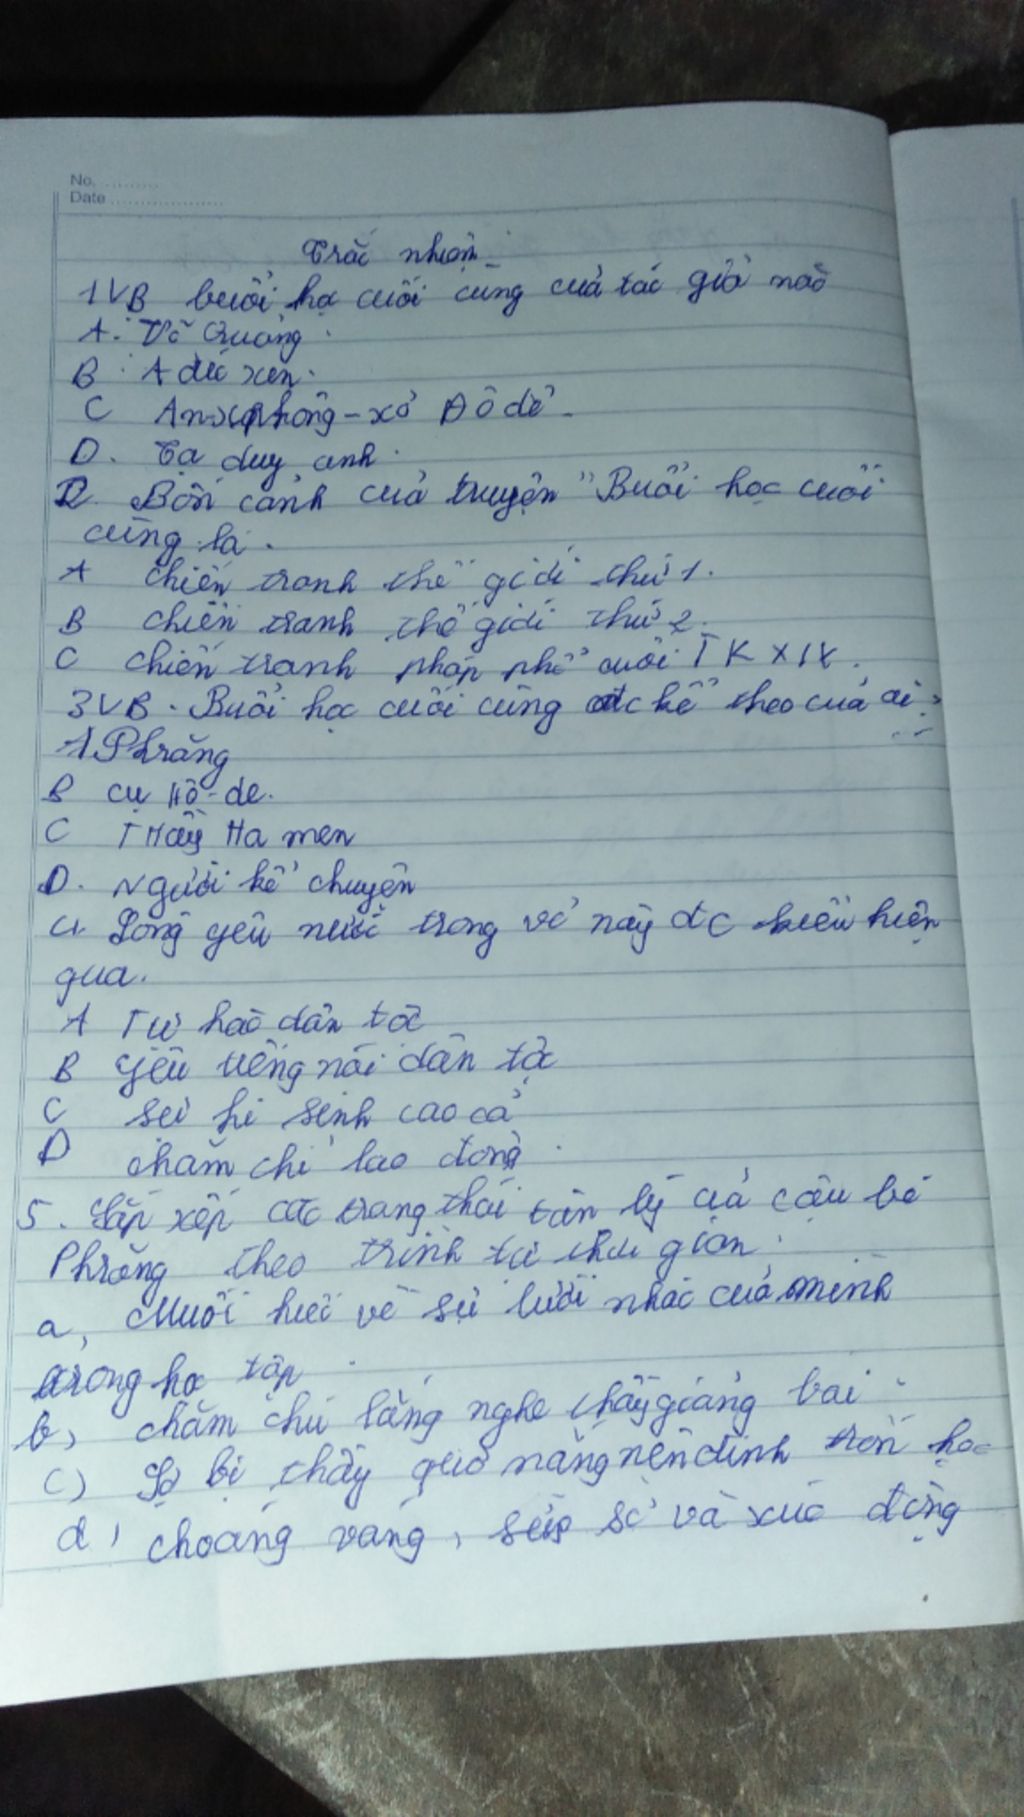 No.
Date
Trắc nhiệm
1 VB buổi học cuối cùng của tác giả nào
A. Võ Quảng.
B. A đéc xen.
C An-Đô dê
D. Tạ duy anh.
2. Bối cảnh của truyện "Buổi học cuối
cùng là.
A chiến tranh thế giới thứ 1.
B chiến tranh thế giới thứ 2.
C chiến tranh pháp phổ cuối TK XIX.
3 VB. Buổi học cuối cùng đc kể theo của ai?
A Phrăng
B cụ Hô-de.
C THầy Ha men
D. Người kể chuyện
4. Lòng yêu nước trong vb này đc biểu hiện
qua.
A Tự hào dân tộc
B yêu tiếng nói dân tộc
C sự hi sinh cao cả
D chăm chỉ lao động.
5. Sắp xếp các trạng thái tâm lý của cậu bé
Phrăng theo trình tự thời gian.
a, về sự lười nhác của mình
trong học tập
b, chăm chú lắng nghe thầy giảng bài.
c) Sợ bị thầy quở mắng nên định trốn học
d, choáng váng, sửng sờ và xúc động